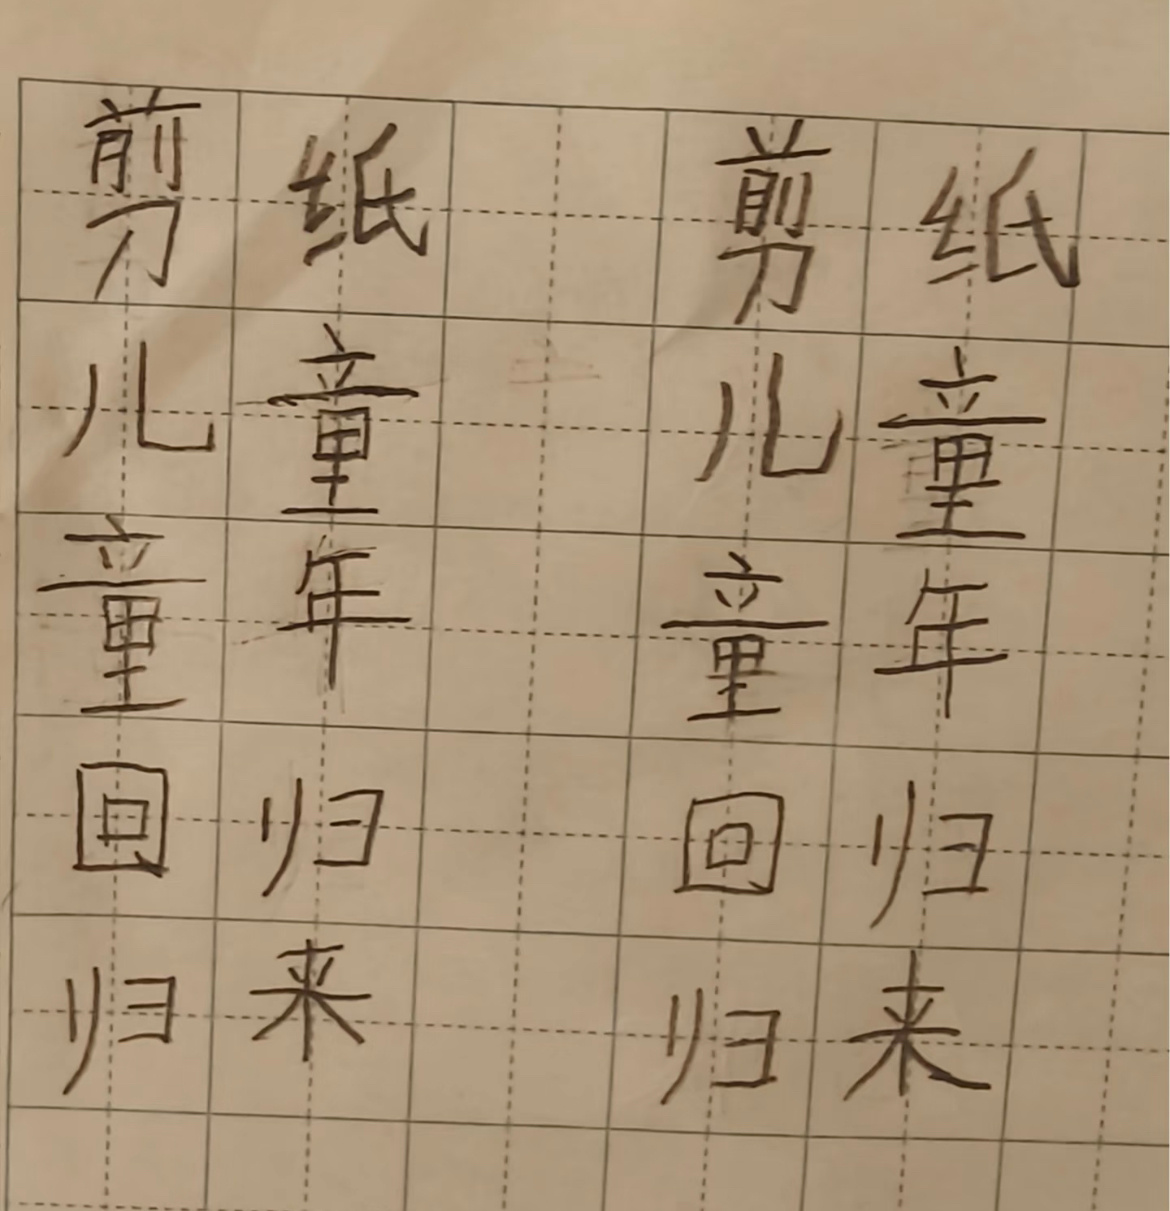 剪纸 剪纸
儿童 儿童
童年 童年
回归 回归
归来 归来